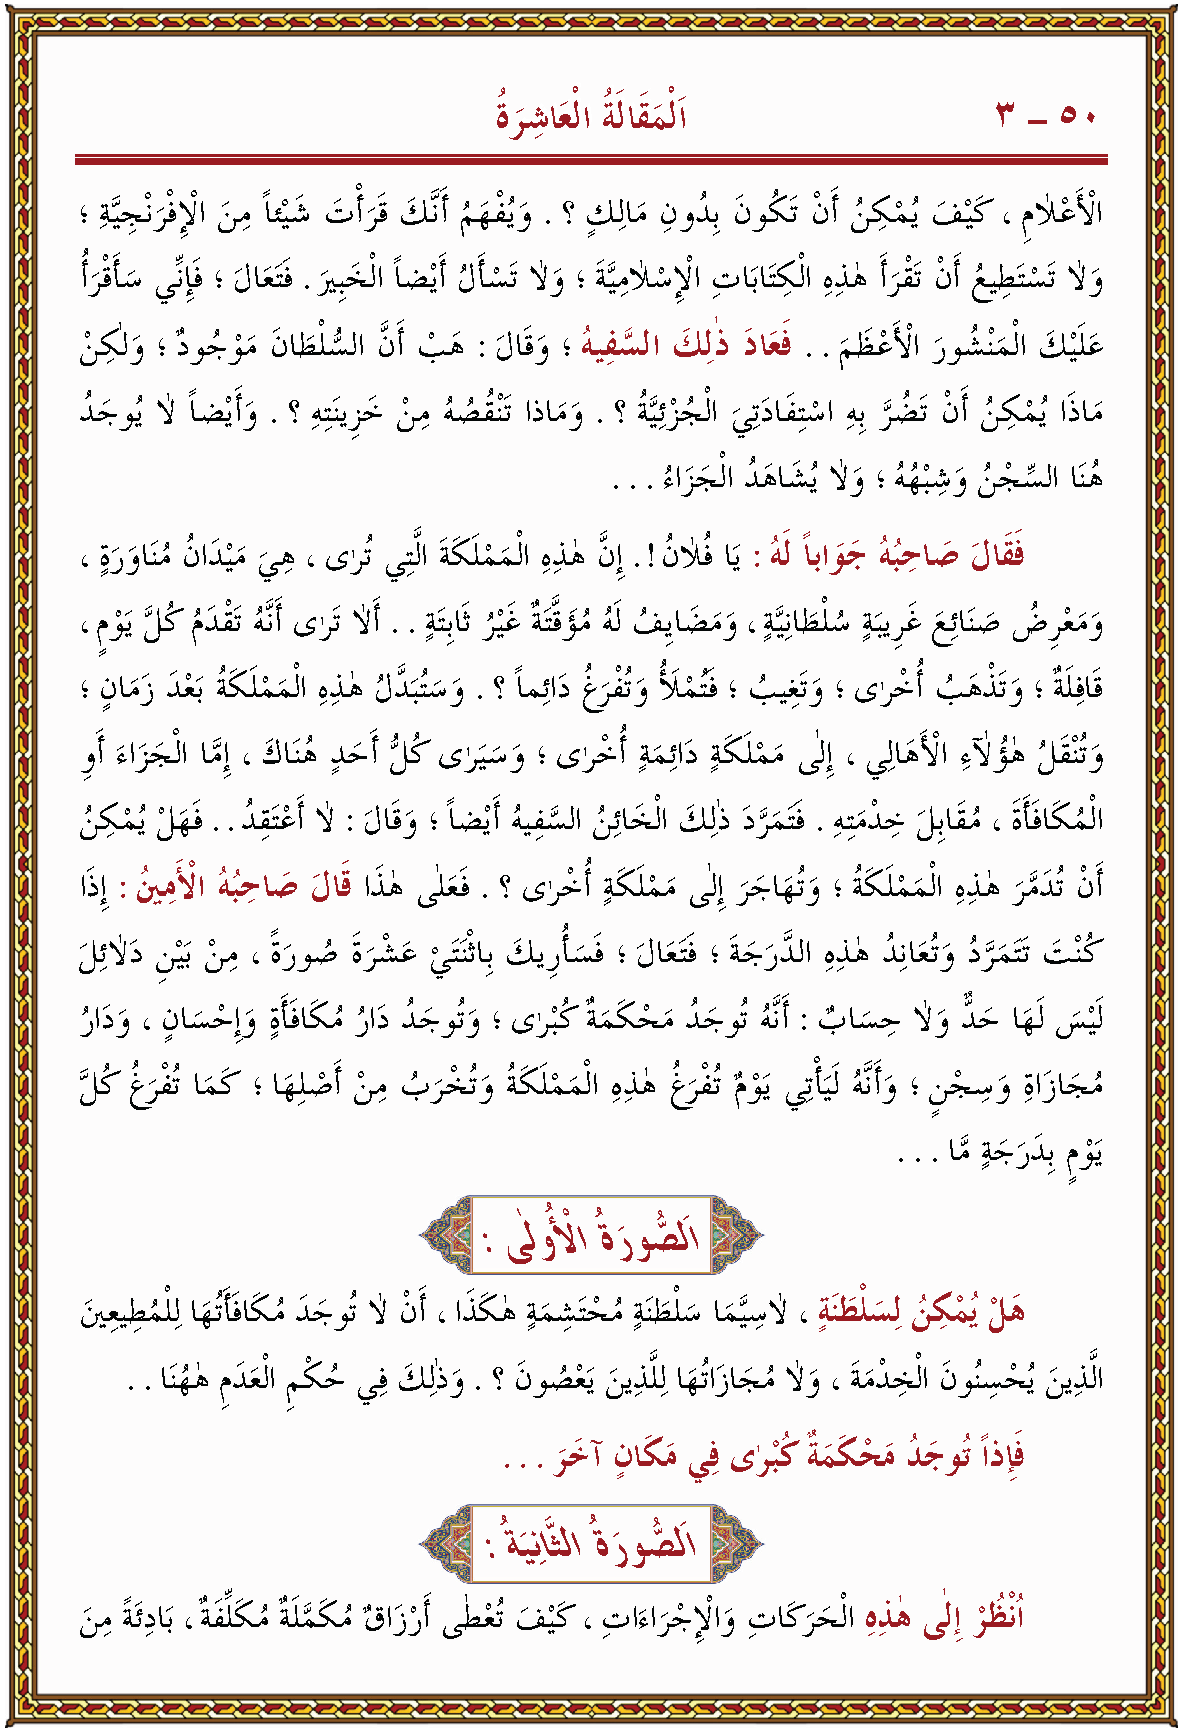 ٥٠ – ٣ اَلْمَقَالَةُ الْعَاشِرَةُ
الْأَعْلاٰمِ ، كَيْفَ يُمْكِنُ أَنْ تَكُونَ بِدُونِ مَالِكٍ ؟ . وَيُفْهَمُ أَنَّكَ قَرَأْتَ شَيْئاً مِنَ الْإِفْرَنْجِيَّةِ ؛
وَلاٰ تَسْتَطِيعُ أَنْ تَقْرَأَ هٰذِهِ الْكِتَابَاتِ الْإِسْلاٰمِيَّةَ ؛ وَلاٰ تَسْأَلُ أَيْضاً الْخَبِيرَ . فَتَعَالَ ؛ فَإِنِّي سَأَقْرَأُ
عَلَيْكَ الْمَنْشُورَ الْأَعْظَمَ . . فَعَادَ ذٰلِكَ السَّفِيهُ ؛ وَقَالَ : هَبْ أَنَّ السُّلْطَانَ مَوْجُودٌ ؛ وَلٰكِنْ
مَاذَا يُمْكِنُ أَنْ تَضُرَّ بِهِ اسْتِفَادَتِيَ الْجُزْئِيَّةُ ؟ . وَمَاذَا تَنْقُصُهُ مِنْ خَزِينَتِهِ ؟ . وَأَيْضاً لاٰ يُوجَدُ
هُنَا السِّجْنُ وَشِبْهُهُ ؛ وَلاٰ يُشَاهَدُ الْجَزَاءُ . . .
فَقَالَ صَاحِبُهُ جَوَاباً لَهُ : يَا فُلاٰنُ ! . إِنَّ هٰذِهِ الْمَمْلَكَةَ الَّتِي تُرٰى ، هِيَ مَيْدَانُ مُنَاوَرَةٍ ،
وَمَعْرِضُ صَنَائِعَ غَرِيبَةٍ سُلْطَانِيَّةٍ ، وَمَضَايِفُ لَهُ مُؤَقَّتَةٌ غَيْرُ ثَابِتَةٍ . . أَلاٰ تَرٰى أَنَّهُ تَقْدَمُ كُلَّ يَوْمٍ ،
قَافِلَةٌ ؛ وَتَذْهَبُ أُخْرٰى ؛ وَتَغِيبُ ؛ فَتُمْلَأُ وَتُفْرَغُ دَائِماً ؟ . وَسَتُبَدَّلُ هٰذِهِ الْمَمْلَكَةُ بَعْدَ زَمَانٍ ؛
وَتُنْقَلُ هٰؤُلآٰءِ الْأَهَالِي ، إِلٰى مَمْلَكَةٍ دَائِمَةٍ أُخْرٰى ؛ وَسَيَرٰى كُلُّ أَحَدٍ هُنَاكَ ، إِمَّا الْجَزَاءَ أَوِ
الْمُكَافَأَةَ ، مُقَابِلَ خِدْمَتِهِ . فَتَمَرَّدَ ذٰلِكَ الْخَائِنُ السَّفِيهُ أَيْضاً ؛ وَقَالَ : لاٰ أَعْتَقِدُ . . فَهَلْ يُمْكِنُ
أَنْ تُدَمَّرَ هٰذِهِ الْمَمْلَكَةُ ؛ وَتُهَاجَرَ إِلٰى مَمْلَكَةٍ أُخْرٰى ؟ . فَعَلٰى هٰذَا قَالَ صَاحِبُهُ الْأَمِينُ : إِذَا
كُنْتَ تَتَمَرَّدُ وَتُعَانِدُ هٰذِهِ الدَّرَجَةَ ؛ فَتَعَالَ ؛ فَسَأُرِيكَ بِاثْنَتَيْ عَشْرَةَ صُورَةً ، مِنْ بَيْنِ دَلاٰئِلَ
لَيْسَ لَهَا حَدٌّ وَلاٰ حِسَابٌ : أَنَّهُ تُوجَدُ مَحْكَمَةٌ كُبْرٰى ؛ وَتُوجَدُ دَارُ مُكَافَأَةٍ وَإِحْسَانٍ ، وَدَارُ
مُجَازَاةٍ وَسِجْنٍ ؛ وَأَنَّهُ لَيَأْتِي يَوْمٌ تُفْرَغُ هٰذِهِ الْمَمْلَكَةُ وَتُخْرَبُ مِنْ أَصْلِهَا ؛ كَمَا تُفْرَغُ كُلَّ
يَوْمٍ بِدَرَجَةٍ مَّا . . .
اَلصُّورَةُ الْأُولٰى :
هَلْ يُمْكِنُ لِسَلْطَنَةٍ ، لاٰسِيَّمَا سَلْطَنَةٍ مُحْتَشِمَةٍ هٰكَذَا ، أَنْ لاٰ تُوجَدَ مُكَافَأَتُهَا لِلْمُطِيعِينَ
الَّذِينَ يُحْسِنُونَ الْخِدْمَةَ ، وَلاٰ مُجَازَاتُهَا لِلَّذِينَ يَعْصُونَ ؟ . وَذٰلِكَ فِي حُكْمِ الْعَدَمِ هٰهُنَا . .
فَإِذاً تُوجَدُ مَحْكَمَةٌ كُبْرٰى فِي مَكَانٍ آخَرَ . . .
اَلصُّورَةُ الثَّانِيَةُ :
اُنْظُرْ إِلٰى هٰذِهِ الْحَرَكَاتِ وَالْإِجْرَاءَاتِ ، كَيْفَ تُعْطٰى أَرْزَاقٌ مُكَمَّلَةٌ مُكَلَّفَةٌ ، بَادِئَةً مِنَ